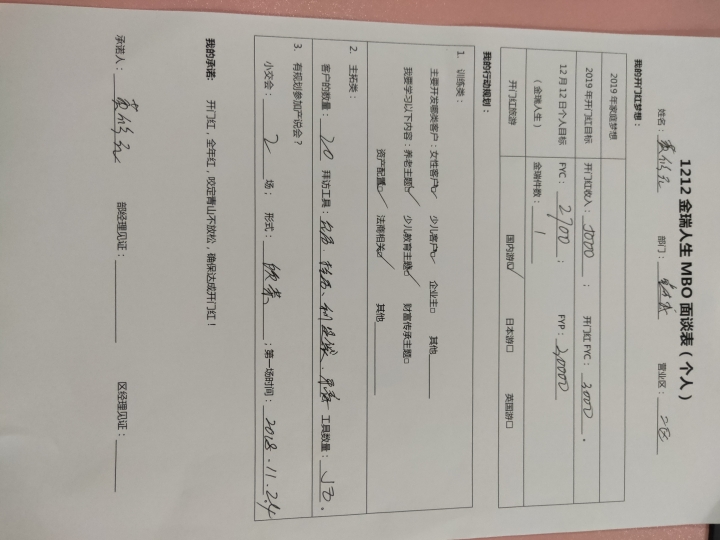 1212 金瑞人生 MBO 面谈表（个人）
姓名： 部门： 营业区：二区
我的开门红梦想：
2019 年家庭梦想
2019 年开门红目标 开门红收入：5000； 开门红 FYC：3000。
12 月 12 日个人目标 FYC：2700； FYP：20000
（金瑞人生） 金瑞件数：1
开门红旅游 国内游☑ 日本游□ 英国游□
我的行动规划：
1. 训练类：
主要开发哪类客户：女性客户☑ 少儿客户☑ 企业主□ 其他
我要学习以下内容：养老主题☑ 少儿教育主题☑ 财富传承主题□
资产配置☑ 法商相关☑ 其他
2. 主拓类：
客户的数量：20 拜访工具： 工具数量：50。
3. 有规划参加产说会？
小交会：2 场； 形式： ；第一场时间：2018.11.24
我的承诺： 开门红，全年红，咬定青山不放松，确保达成开门红！
承诺人： 部经理见证： 区经理见证：